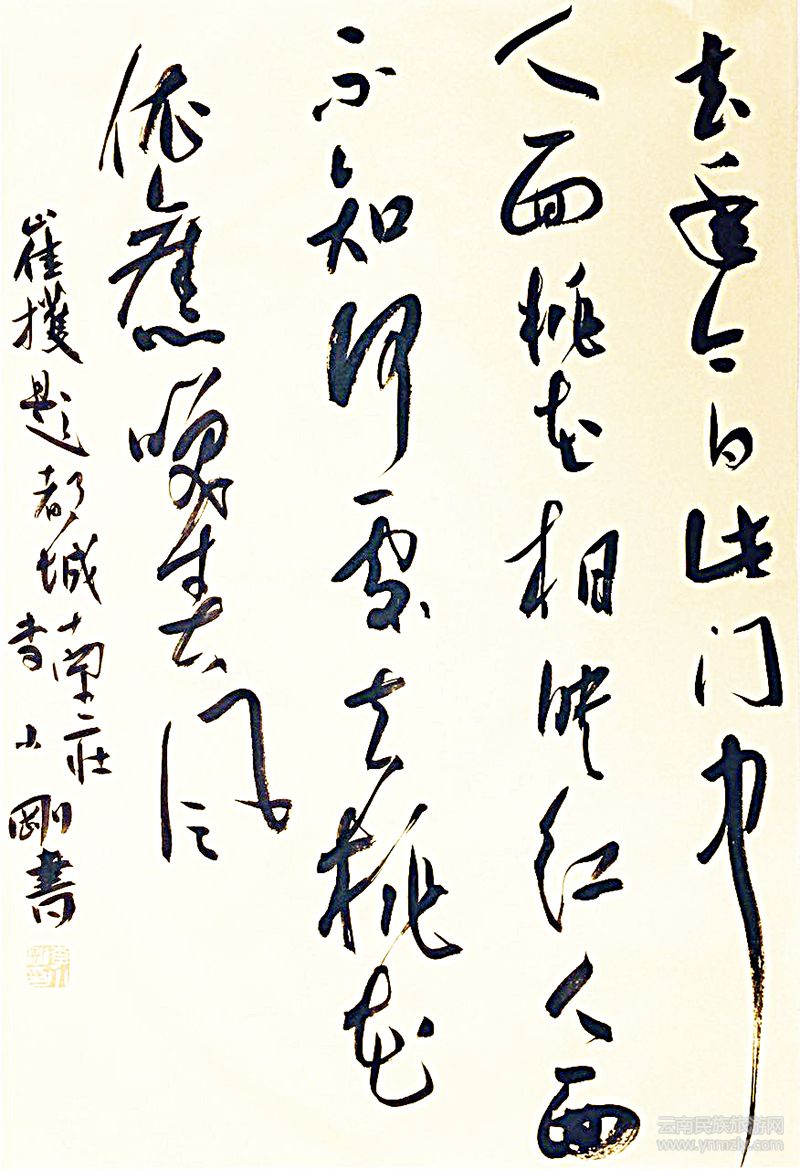 去年今日此门中
人面桃花相映红人面
不知何處去桃花
依舊笑春风
崔護題都城南莊
小剛書
云南民族旅游网
www.ynmzly.com